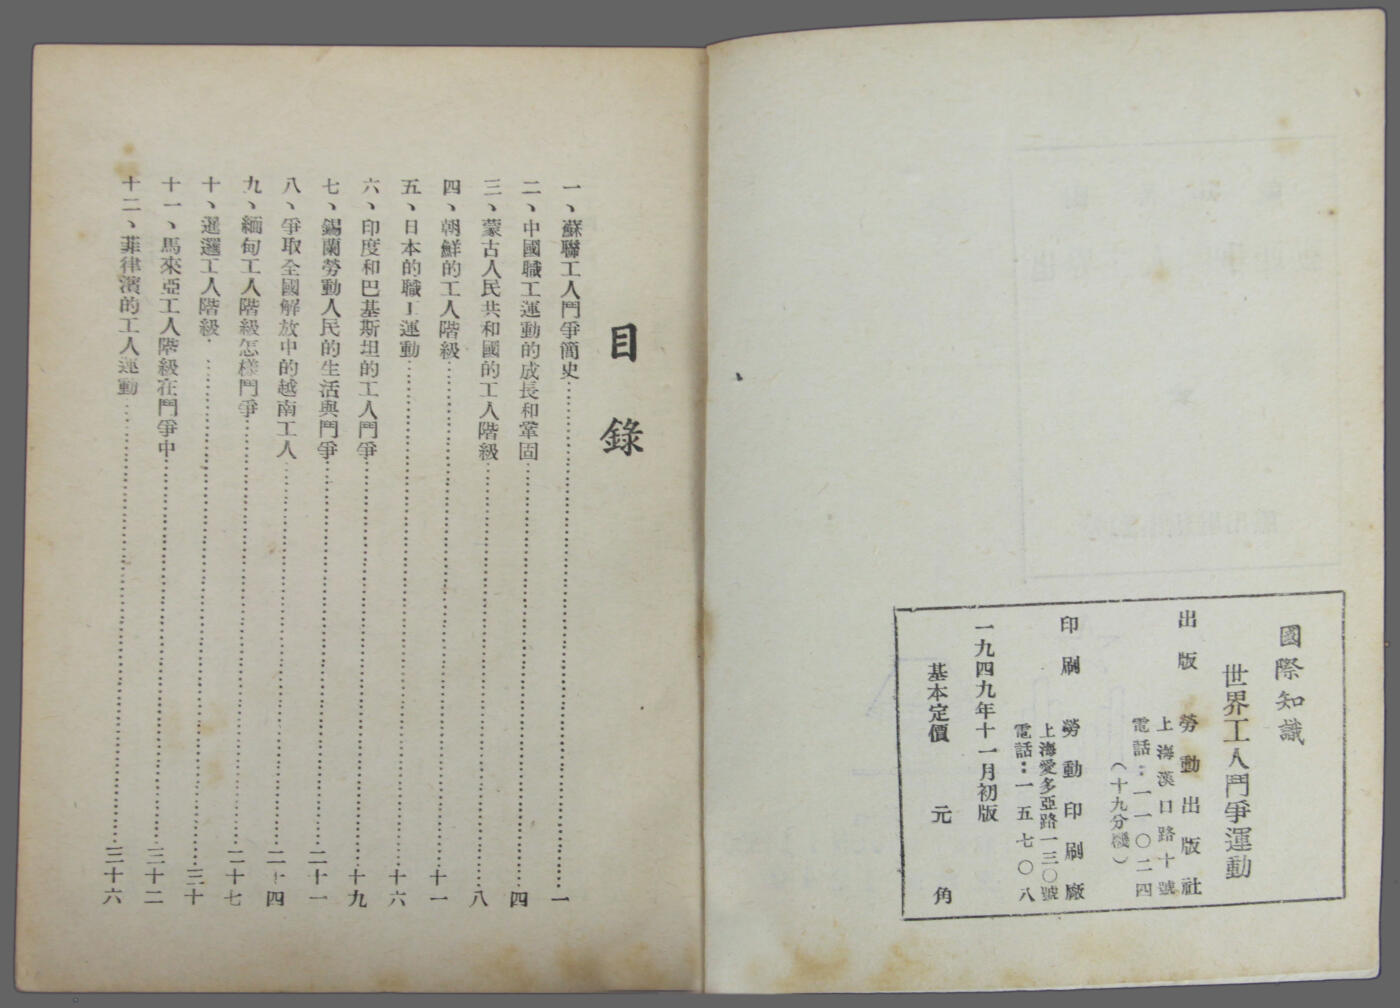 國際知識
世界工人鬥爭運動
出版 勞動出版社
上海漢口路十號
電話：一一〇二四
（十九分機）
印刷 勞動印刷廠
上海愛多亞路一三〇號
電話：一五七〇八
一九四九年十一月初版
基本定價 元 角
目錄
一、蘇聯工人鬥爭簡史……一
二、中國職工運動的成長和鞏固……四
三、蒙古人民共和國的工人階級……八
四、朝鮮的工人階級……十一
五、日本的職工運動……十六
六、印度和巴基斯坦的工人鬥爭……十九
七、錫蘭勞動人民的生活與鬥爭……二十一
八、爭取全國解放中的越南工人……二十四
九、緬甸工人階級怎樣鬥爭……二十七
十、暹邏工人階級……三十
十一、馬來亞工人階級在鬥爭中……三十二
十二、菲律濱的工人運動……三十六